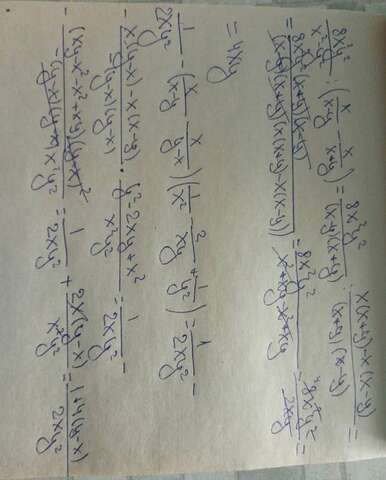 8x²y²/(x²-y²) : (x/(x-y) - x/(x+y)) = 8x²y²/((x-y)(x+y)) : (x(x+y)-x(x-y))/((x+y)(x-y)) =
= 8x²y²(x+y)(x-y)/((x-y)(x+y)(x(x+y)-x(x-y))) = 8x²y²/(x²+xy-x²+xy) = 8x²y²/2xy =
= 4xy
1/2xy² - (x/(x-y) - x/(y-x))(1/x² - 2/xy + 1/y²) = 1/2xy² -
- (x(y-x)-x(x-y))/((x-y)(y-x)) · (y²-2xy+x²)/x²y² = 1/2xy² -
- (xy-x²-x²+xy)(y-x)²/((x-y)(y-x)x²y²) = 1/2xy² + 2x(y-x)/x²y² = (1+4(y-x))/2xy²